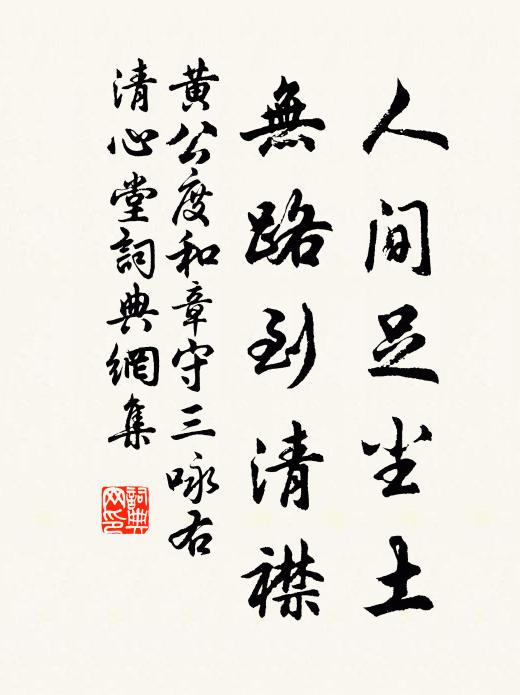 人間足尘土
無路到清襟
黃公度和章守三咏右
清心堂詞典網集
詞典
网印